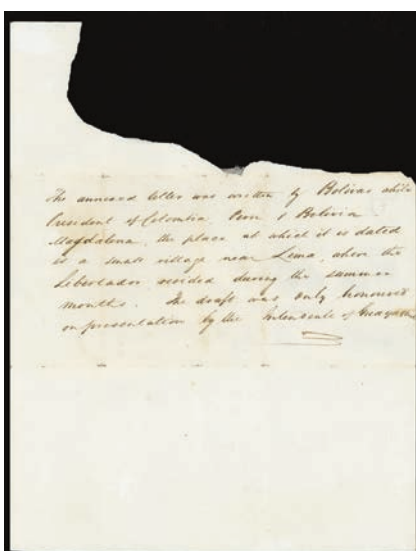 The annexed letter was written by Bolivar while
President of Colombia, Peru & Bolivia
Magdalena, the place at which it is dated
is a small village near Lima, where the
Libertador resided during the summer
months. The draft was only honoured
on presentation by the Intendente of Guayaquil